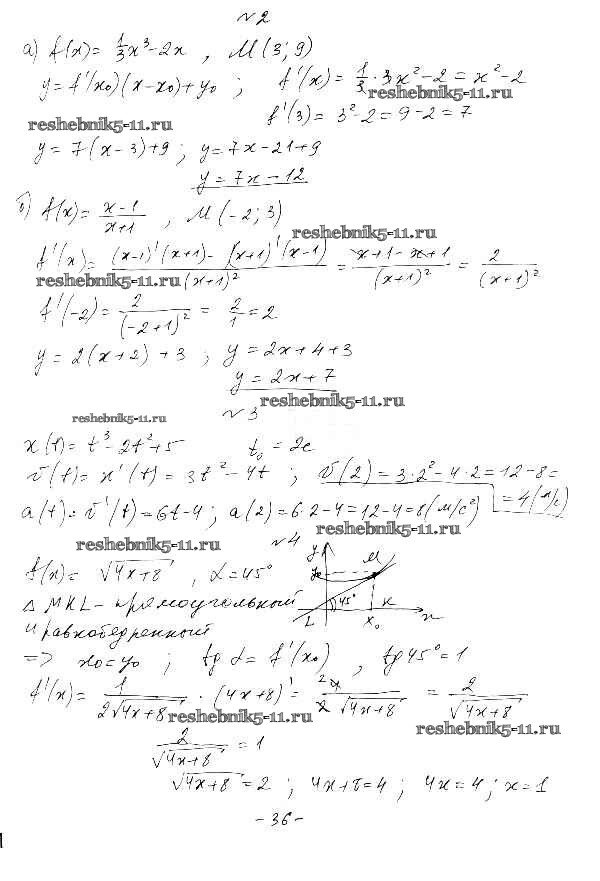 №2
а) f(x) = 1/3 x³ - 2x , M(3; 9)
y = f'(x₀)(x - x₀) + y₀ ; f'(x) = 1/3 · 3x² - 2 = x² - 2
reshebnik5-11.ru
f'(3) = 3² - 2 = 9 - 2 = 7
reshebnik5-11.ru
y = 7(x - 3) + 9 ; y = 7x - 21 + 9
y = 7x - 12
б) f(x) = (x - 1)/(x + 1) , M(-2; 3)
reshebnik5-11.ru
f'(x) = ((x - 1)'(x + 1) - (x + 1)'(x - 1))/(x + 1)² = (x + 1 - x + 1)/(x + 1)² = 2/(x + 1)²
reshebnik5-11.ru
f'(-2) = 2/(-2 + 1)² = 2/1 = 2
y = 2(x + 2) + 3 ; y = 2x + 4 + 3
y = 2x + 7
reshebnik5-11.ru
№3
reshebnik5-11.ru
x(t) = t³ - 2t² + 5 t₀ = 2c
v(t) = x'(t) = 3t² - 4t ; v(2) = 3·2² - 4·2 = 12 - 8 =
= 4 (м/с)
a(t) = v'(t) = 6t - 4 ; a(2) = 6·2 - 4 = 12 - 4 = 8 (м/с²)
reshebnik5-11.ru
reshebnik5-11.ru
№4
f(x) = √(4x + 8) , α = 45°
y y₀ M 45° L K x₀ x
Δ MKL - прямоугольный
и равнобедренный
=> x₀ = y₀ ; tg α = f'(x₀) , tg 45° = 1
f'(x) = 1/(2√(4x + 8)) · (4x + 8)' = 4/(2√(4x + 8)) = 2/√(4x + 8)
reshebnik5-11.ru
reshebnik5-11.ru
2/√(4x + 8) = 1
√(4x + 8) = 2 ; 4x + 8 = 4 ; 4x = 4 ; x = 1
- 36 -